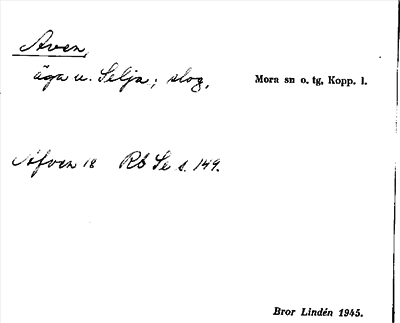 Aven,
äga u. Selja; slog,
Mora sn o. tg, Kopp. l.
Afven 18 Rb Se s. 149.
Bror Lindén 1945.